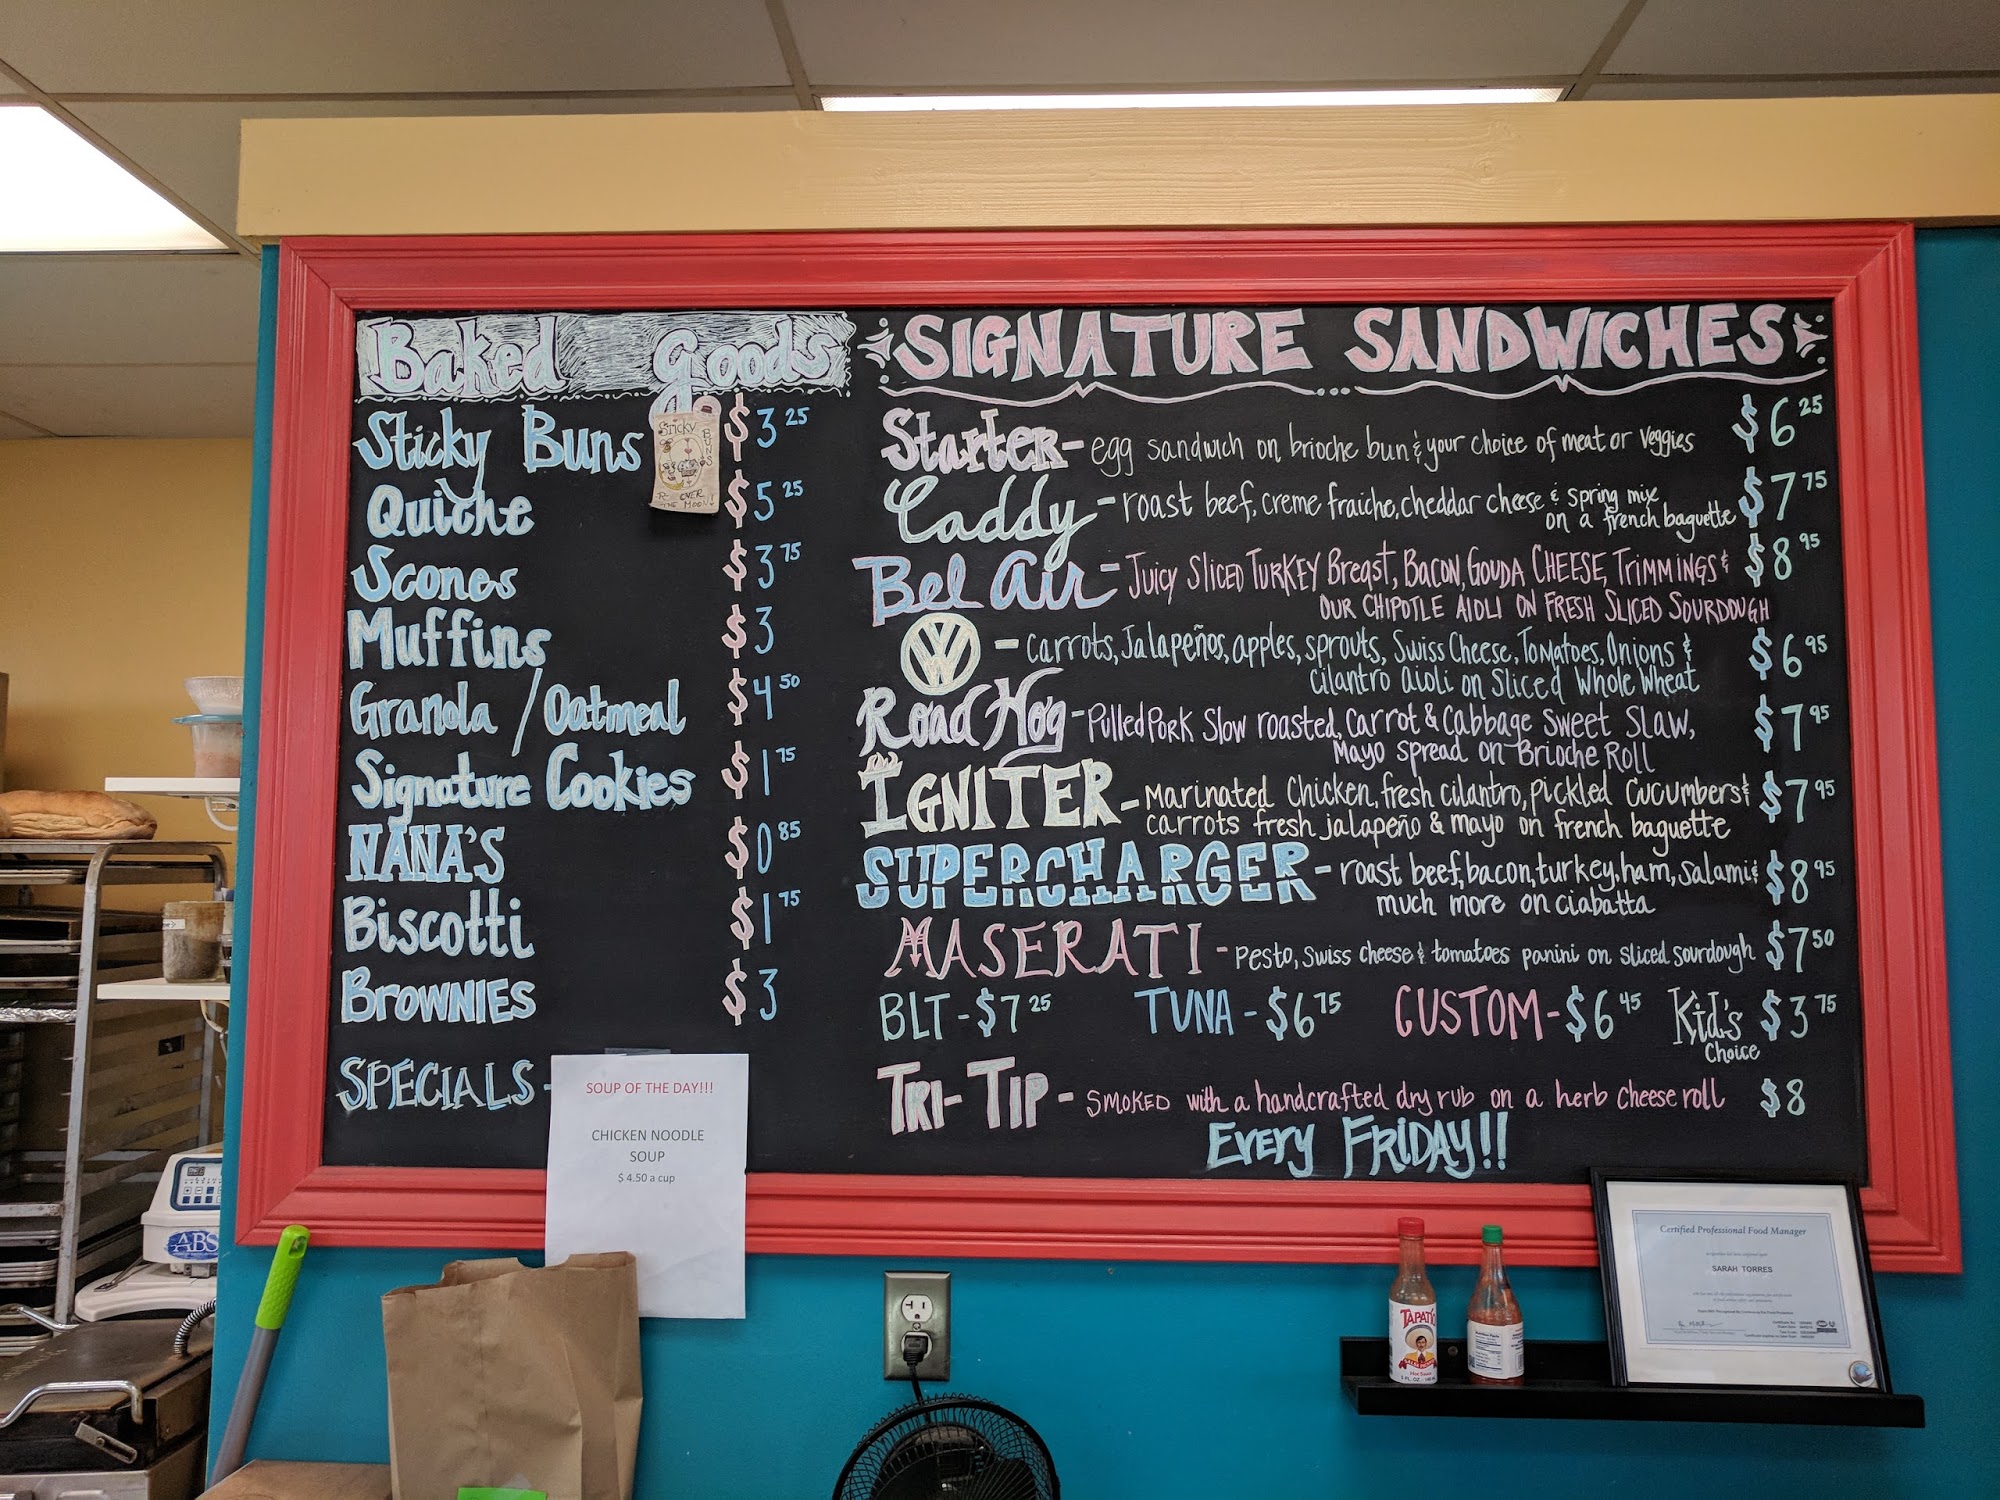 Baked Goods
Sticky Buns $3 25
Quiche $5 25
Scones $3 75
Muffins $3
Granola / Oatmeal $4 50
Signature Cookies $1 75
NANA'S $0 85
Biscotti $1 75
BROWNIES $3
SPECIALS-
Sticky
BUNS
OVER
THE MOON!
SOUP OF THE DAY!!!
CHICKEN NOODLE
SOUP
$ 4.50 a cup
SIGNATURE SANDWICHES
Starter- egg sandwich on brioche bun & your choice of meat or veggies $6 25
Caddy - roast beef, creme fraiche, cheddar cheese & spring mix $7 75
on a french baguette
Bel Air - JUICY SLICED TURKEY Breast, BACON, GOUDA CHEESE, TRIMMINGS & $8 95
OUR CHIPOTLE AIOLI ON FRESH SLICED SOURDOUGH
VW - carrots, Jalapeños, apples, sprouts, Swiss Cheese, Tomatoes, Onions & $6 95
Cilantro aioli on Sliced Whole Wheat
Road Hog - Pulled Pork Slow roasted, Carrot & Cabbage Sweet Slaw, $7 95
Mayo spread on Brioche Roll
IGNITER - Marinated Chicken, fresh cilantro, pickled cucumbers & $7 95
carrots fresh jalapeño & mayo on french baguette
SUPERCHARGER - roast beef, bacon, turkey, ham, salami & $8 95
much more on ciabatta
MASERATI - Pesto, swiss cheese & tomatoes panini on sliced sourdough $7 50
BLT - $7 25 TUNA - $6 75 CUSTOM - $6 45 Kid's $3 75
Choice
TRI-TIP - SMOKED with a handcrafted dry rub on a herb cheese roll $8
EVERY FRIDAY!!
Certified Professional Food Manager
SARAH TORRES
TAPATÍO
ABS